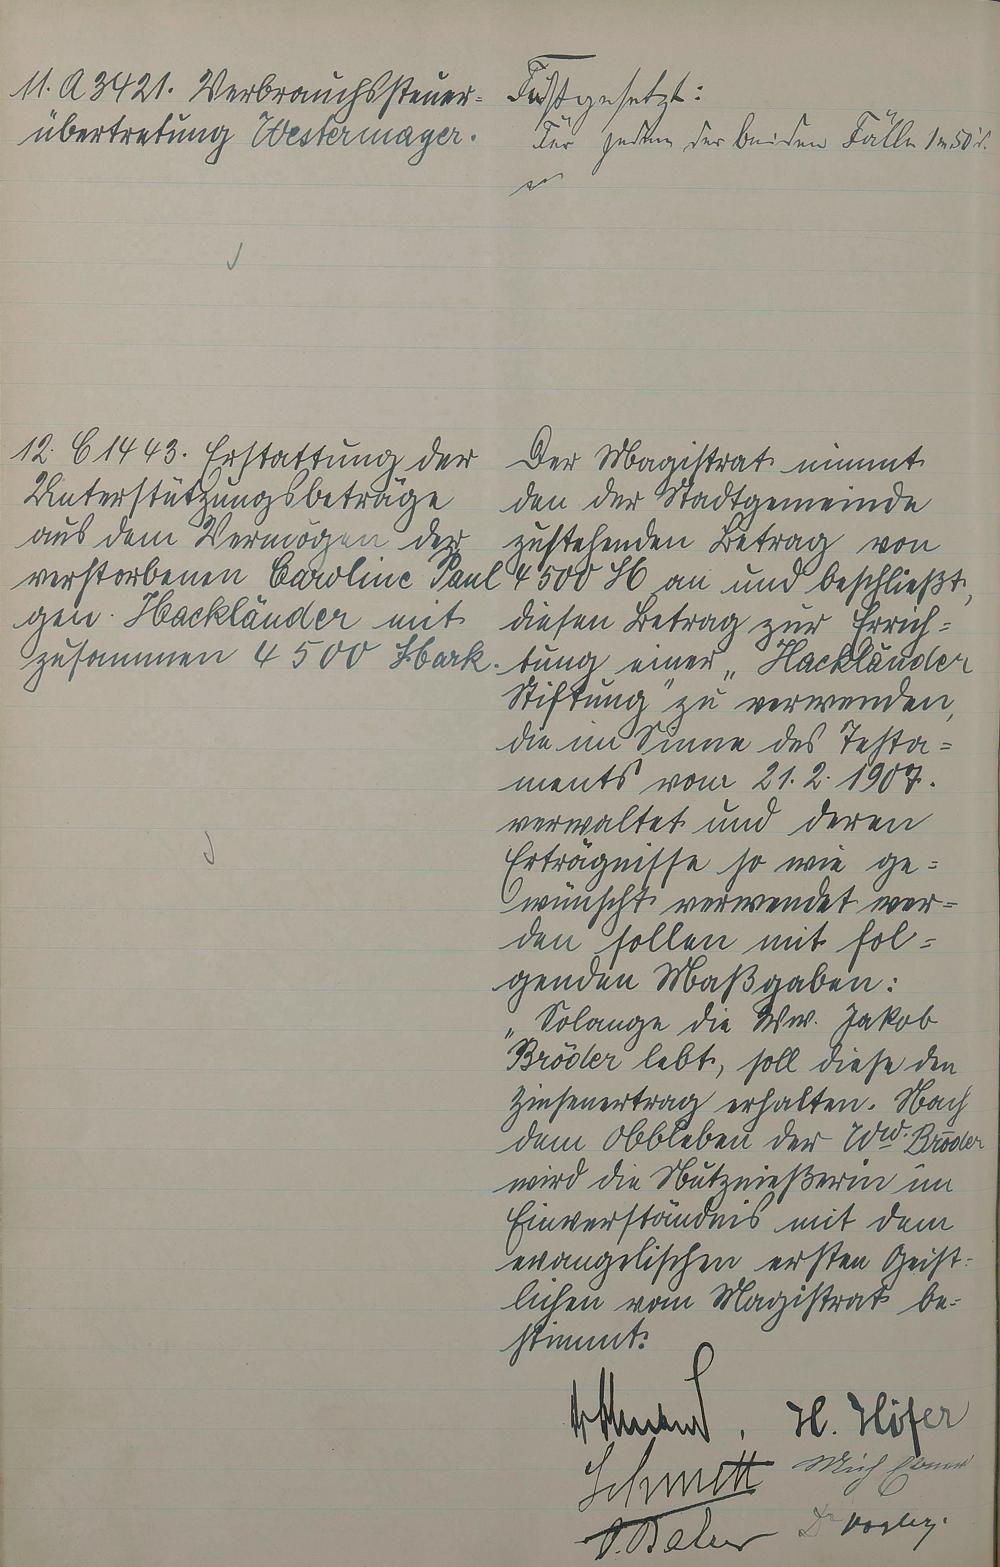 11. A 3421. Verbrauchssteuer-
übertretung Westermayer.
Festgesetzt:
Für jeden der beiden Fälle 1 M 50 d.
12. C 1443. Erstattung der
Unterstützungsbeträge
aus dem Vermögen der
verstorbenen Caroline Paul
gen. Hackländer mit
zusammen 4500 Mark.
Der Magistrat nimmt
den der Stadtgemeinde
zustehenden Betrag von
4500 M an und beschließt,
diesen Betrag zur Errich-
tung einer „Hackländer
Stiftung" zu verwenden,
die im Sinne des Testa-
ments vom 21.2.1907.
verwaltet und deren
Erträgnisse so wie ge-
wünscht verwendet wer-
den sollen mit fol-
genden Maßgaben:
„Solange die Ww. Jakob
Bröder lebt, soll diese den
Zinsenertrag erhalten. Nach
dem Abbleben der Ww. Bröder
wird die Nutznießerin im
Einverständnis mit dem
evangelischen ersten Geist-
lichen vom Magistrat be-
stimmt.
H. Höfer
Schmitt